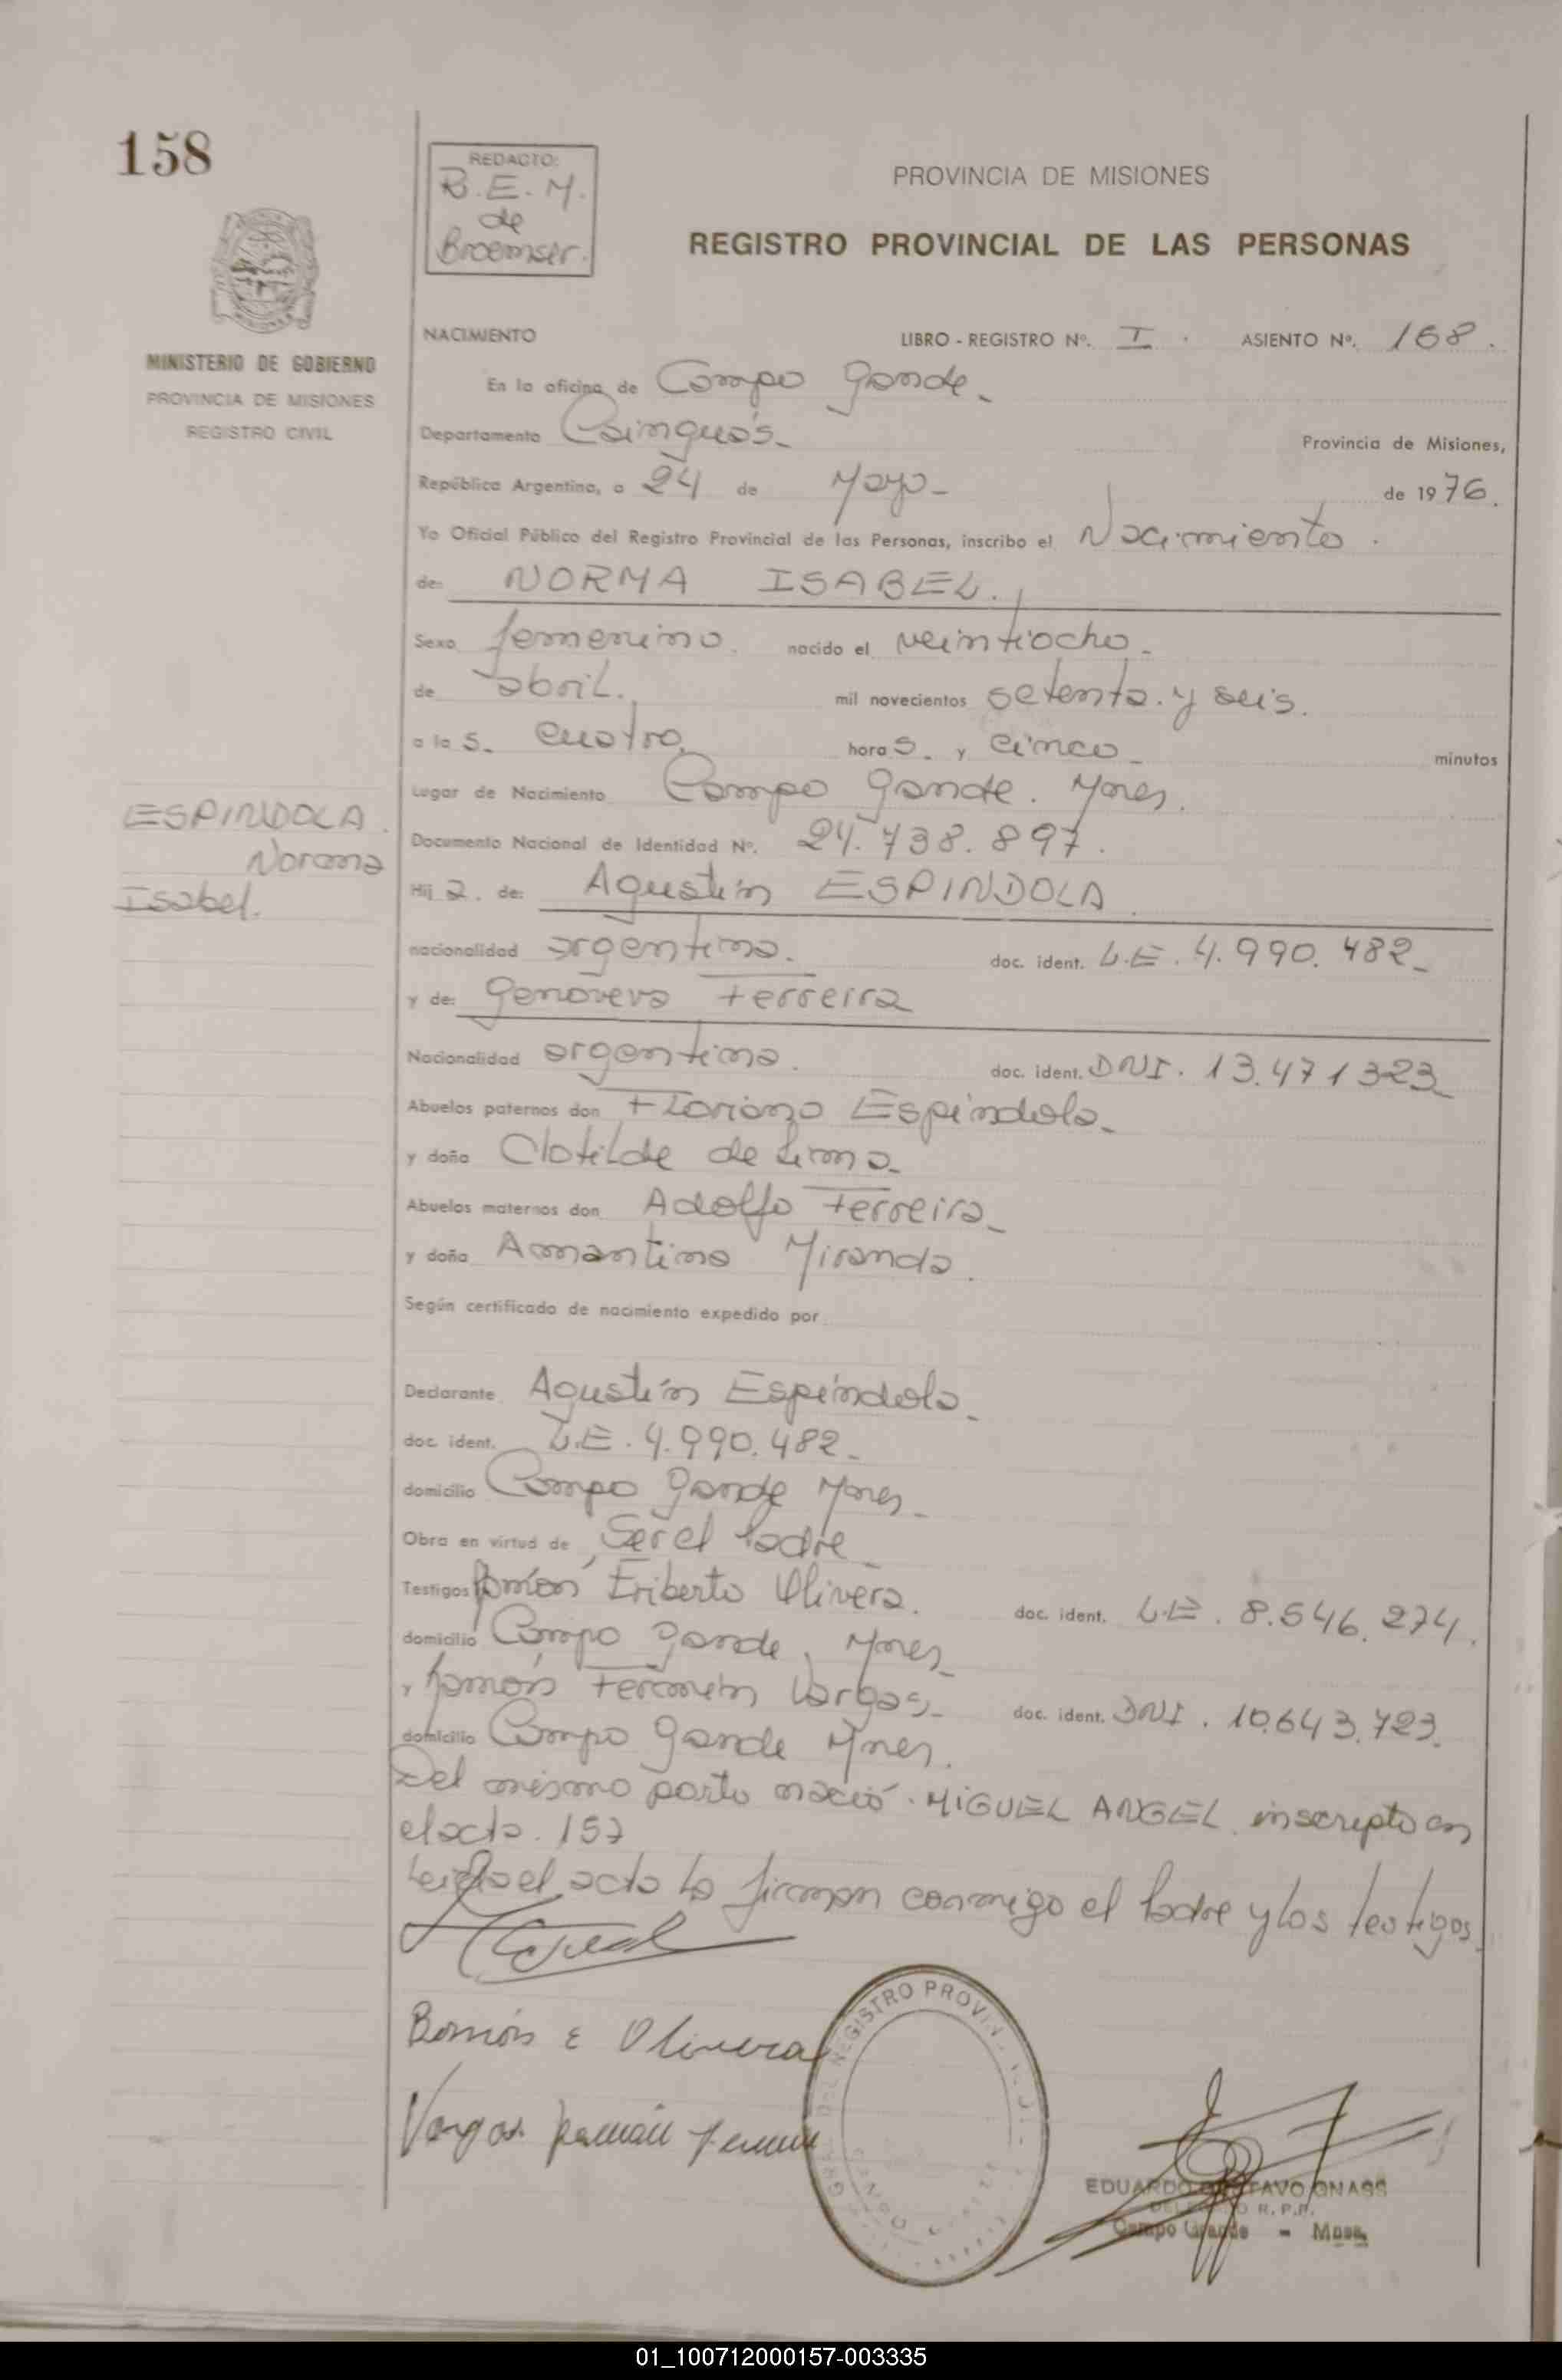 158
REDACTO:
B.E.M.
de
Broemser.
PROVINCIA DE MISIONES
REGISTRO PROVINCIAL DE LAS PERSONAS
MINISTERIO DE GOBIERNO
PROVINCIA DE MISIONES
REGISTRO CIVIL
NACIMIENTO LIBRO - REGISTRO Nº. I. ASIENTO Nº. 158.
En la oficina de Campo Gande.
Departamento Cainguás. Provincia de Misiones,
República Argentina, a 24 de Mayo- de 1976.
Yo Oficial Público del Registro Provincial de las Personas, inscribo el Nacimiento.
de: NORMA ISABEL.
Sexo femenino. nacido el veintiocho-
de abril. mil novecientos setenta y seis.
a las. cuatro. horas. y cinco- minutos
Lugar de Nacimiento Campo Gande. Mnes.
Documento Nacional de Identidad Nº. 24.738.897.
Hija. de: Agustín ESPINDOLA
ESPINDOLA.
Norma
Isabel.
nacionalidad argentina. doc. ident. L.E. 4.990.482-
y de: Genoveva Ferreira
Nacionalidad argentina. doc. ident. DNI. 13.471323
Abuelos paternos don Floriano Espíndola-
y doña Clotilde de Lima-
Abuelos maternos don Adolfo Ferreira-
y doña Amantina Miranda.
Según certificado de nacimiento expedido por
Declarante Agustín Espíndola-
doc. ident. L.E. 4.990.482-
domicilio Campo Gande Mnes-
Obra en virtud de Ser el Padre-
Testigos Ramón Eriberto Olivera. doc. ident. L.E. 8.546.274.
domicilio Campo Gande, Mnes-
y Ramón Fermín Vargas- doc. ident. DNI. 10.643.723.
domicilio Campo Gande Mnes.
Del mismo parto nació. MIGUEL ANGEL inscripto en
el acta. 157
Leida el acta la firman conmigo el Padre y los testigos
Ramón E Olivera
Vargas Ramón Fermin
REGISTRO PROVIN
EDUARDO GUSTAVO GNASS
DELEGADO R.P.P.
Campo Grande - Mnes.
01_100712000157-003335